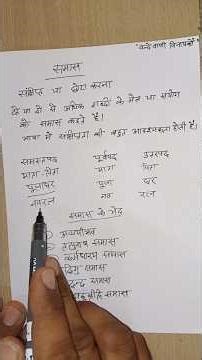 "वन्दे वाणी विनायकौ"
समास
संक्षिप्त या छोटा करना
दो या दो से अधिक शब्दों के मेल या संयोग
को समास कहते हैं।
भाषा में संक्षिप्तता की बहुत आवश्यकता होती है।
समस्तपद पूर्वपद उत्तरपद
पूजाघर पूजा घर
नवरत्न नव रत्न
समास के भेद
अव्ययीभाव
तत्पुरुष समास
कर्मधारय समास
द्विगु समास
द्वन्द्व समास
बहुव्रीहि समास